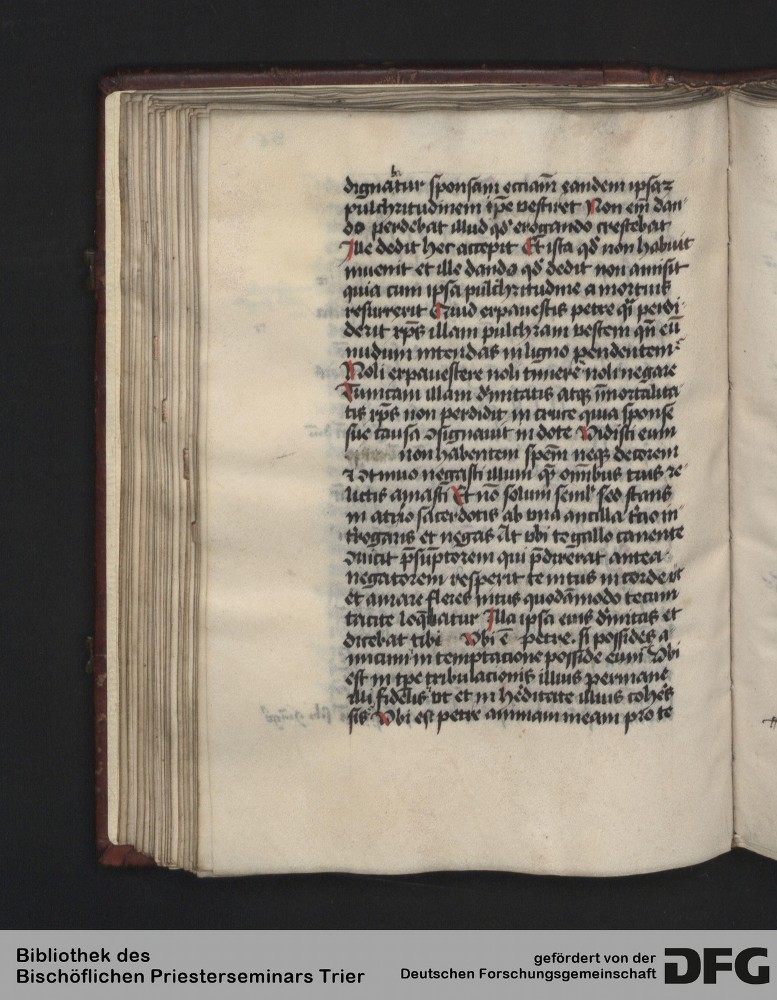 dignabitur sponsam ecciam̄ eandem ipsaꝫ
pulchritudinem ip̄e vestiret Non eiṁ dan
do perdebat illud qd̾ erogando crescebat
Ille dedit hec accepit Et ista qd̾ non habuit
inuenit et ille dando qd̾ dedit non amisit
quia cum ipsa pulchritudine a mortuis
resurrexit Quid expauestis petre qꝛ perdi
derit xp̄s illam pulchram vestem qn̄ eū
nudum intendas in ligno pendentem
Noli expauescere noli timere noli negare
Tunicam illam diuītatis atqꝫ īmortalita
tis xp̄s non perdidit in cruce quia sponse
sue causa ꝯsignauit in dote Vidisti eum
non habentem spēm neqꝫ decorem
⁊ ꝯtinuo negasti illum qͫ om̄ibus tuis re
lictis amasti Et nō solum semel sed stans
in atrio sacerdotis ab vna ancilla tercio in
terrogaris et negas At vbi te gallo canente
ꝯuicit p̄sūptorem qui p̄dixerat antea
negatorem respexit te intus in corde vt
et amare fleres intus quodāmodo tecum
tacite loquebatur Illa ipsa eius diuītas et
dicebat tibi Vbi ē petre si possides a
micum in temptacione posside eum Vbi
est in tp̄e tribulacionis illius permane
illi fidelis vt et in h̾editate illius coh̾es
sis Vbi est petre animam meam pro te
Bibliothek des
Bischöflichen Priesterseminars Trier
gefördert von der
Deutschen Forschungsgemeinschaft
DFG